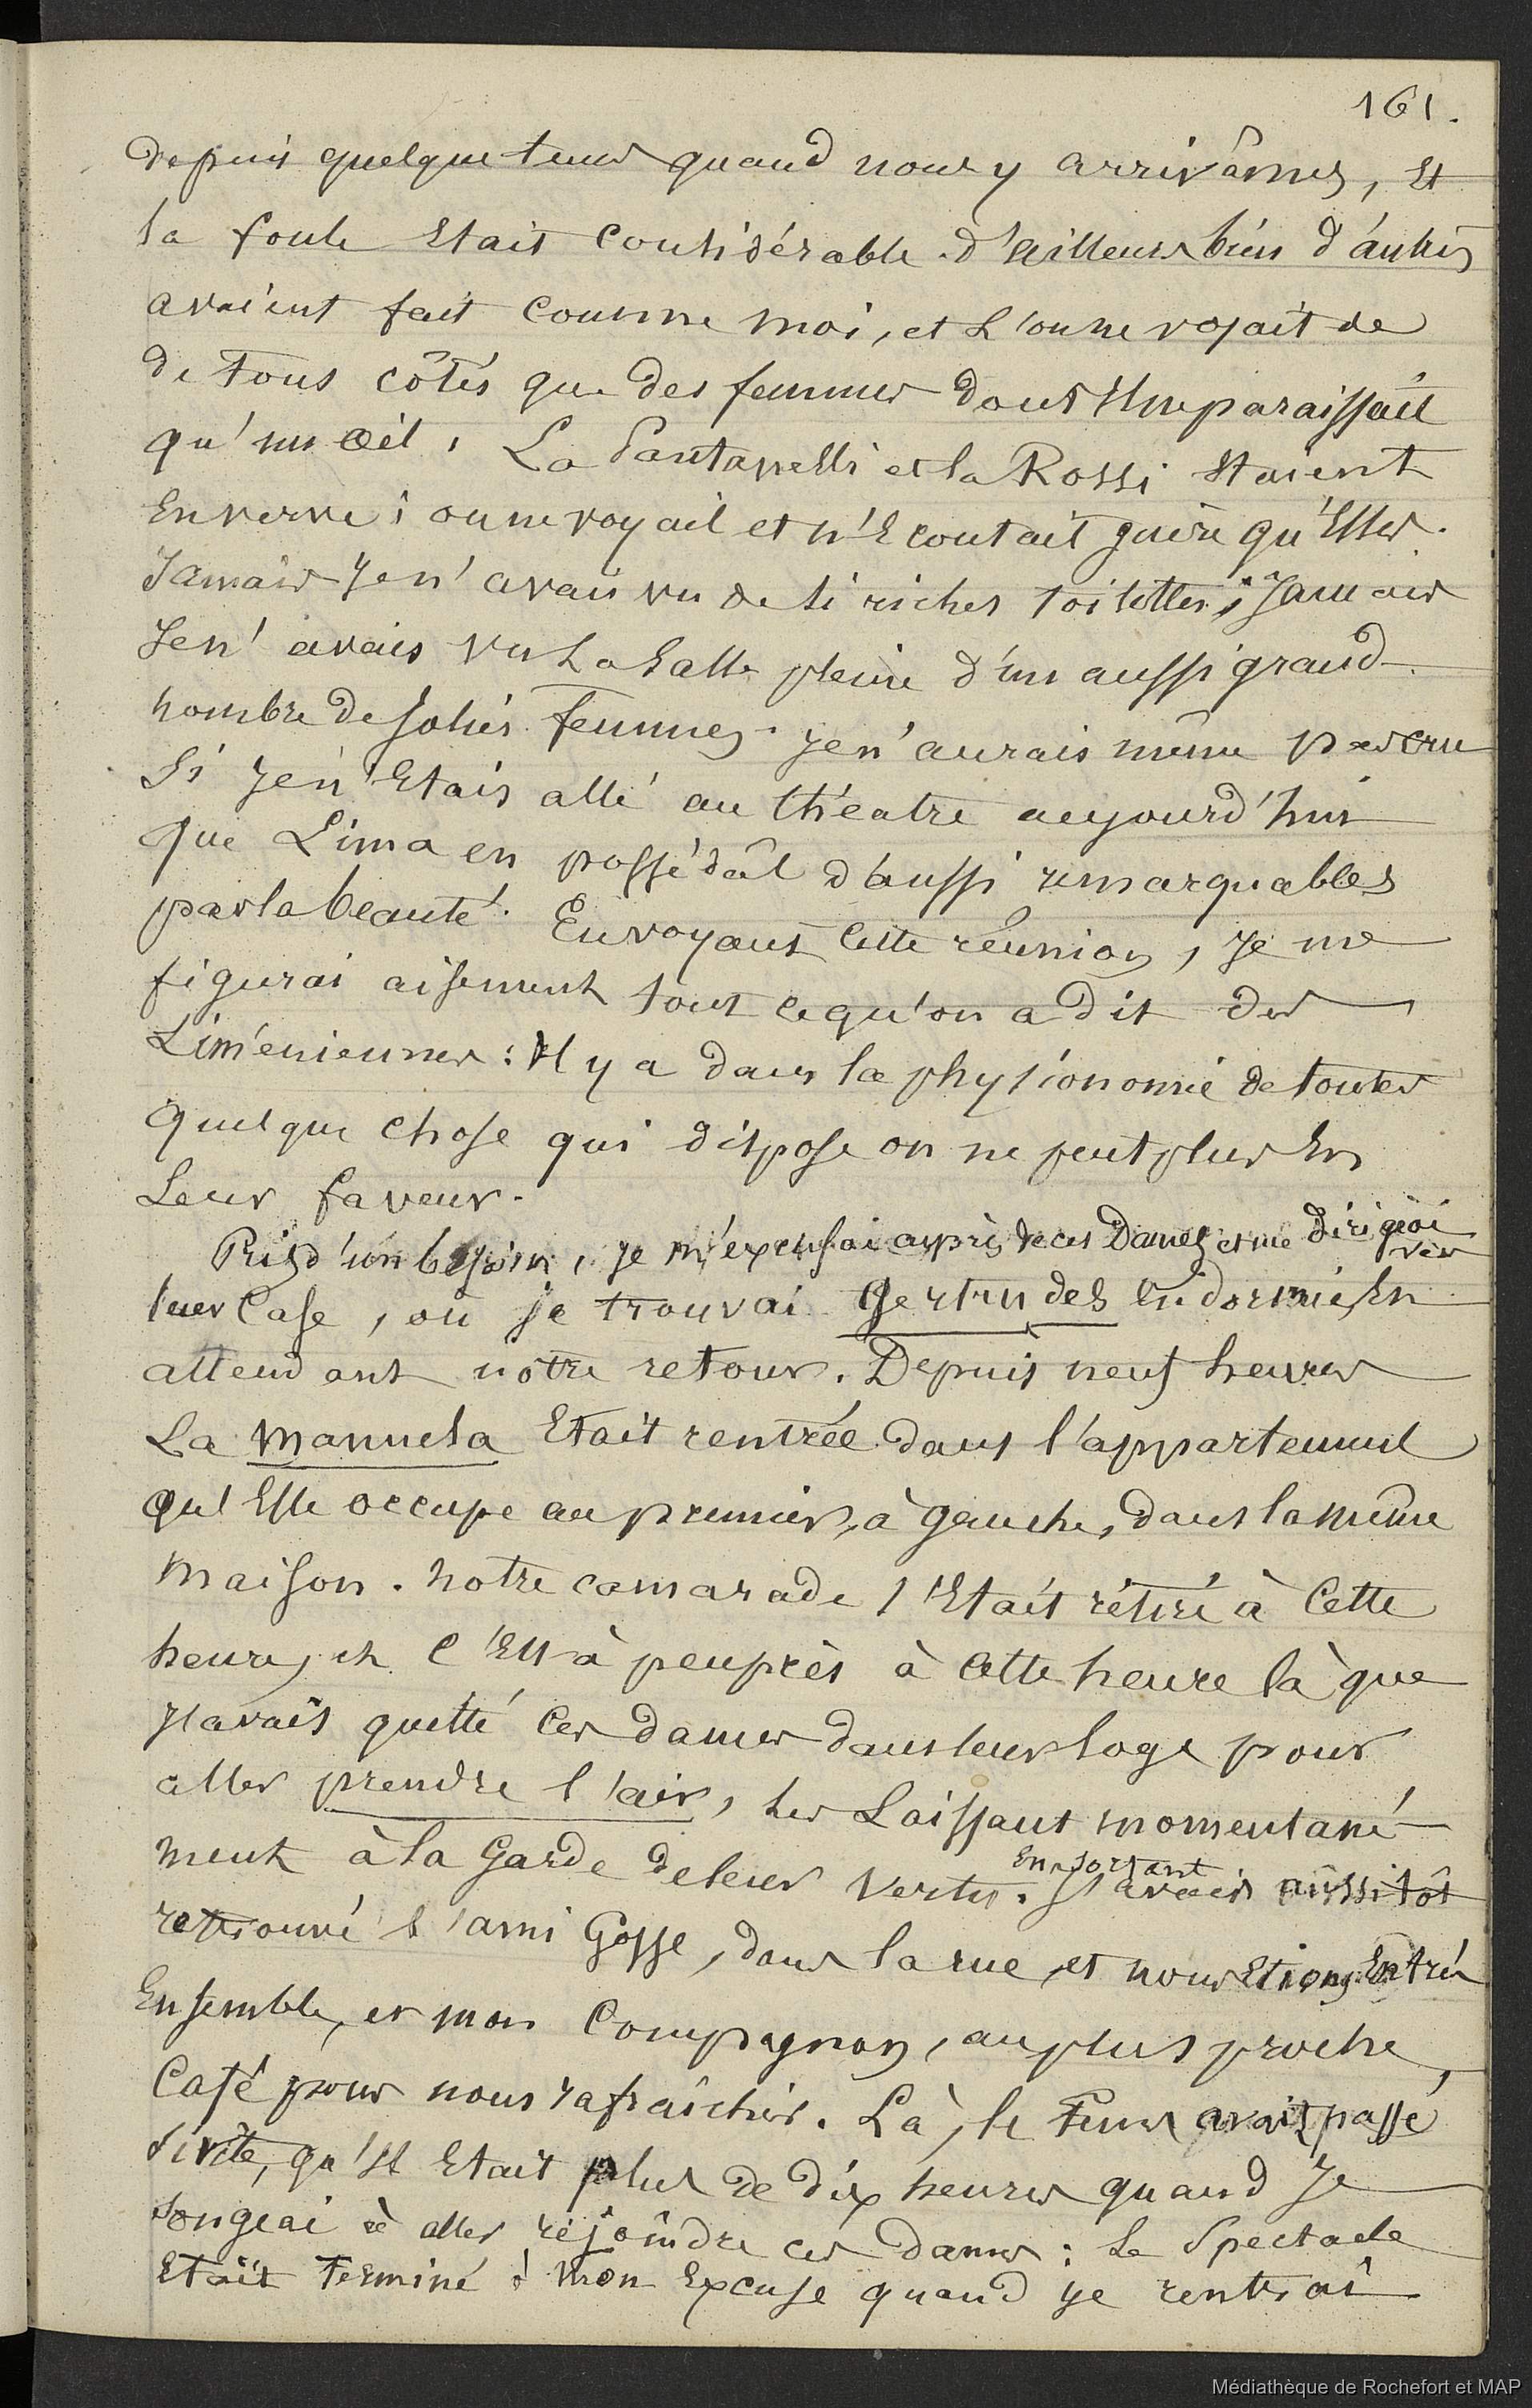 161.
depuis quelque tems quand nous y arrivâmes, Et
la foule Etait considérable. d'ailleurs bien d'autres
avaient fait comme moi, et L'on ne voyait de
de tous côtés que des femmes dont Il ne paraissait
qu'un œil. La Pantanelli et la Rossi Etaient
En verve; on ne voyait et n'Ecoutait guère qu'Elles.
Jamais Je n'avais vu de si riches toilettes; Jamais
Je n'avais vu La Salle pleine d'un aussi grand
nombre de Jolies femmes. Je n'aurais même pas cru
Si Je n'Etais allé au théatre aujourd'hui
que Lima en possédât d'aussi remarquables
par la beauté. En voyant Cette réunion, Je me
figurai aisement tout ce qu'on a dit des
Liméniennes: Il y a dans la physionomie de toutes
quelque chose qui dispose on ne peut plus En
Leur faveur.
Pris d'un besoin, Je m'excusai auprès de ces Dames et me dirigeai
vers
leur Case, où je trouvai Gertrudes Endormie, En
attendant notre retour. Depuis neuf heures
La Manuela Etait rentrée dans l'appartement
qu'Elle occupe au premier, à gauche, dans la même
Maison. Notre camarade s'Etait rétiré à Cette
heure, et C'Est à peu près à Cette heure là que
J'avais quitté Ces dames dans leur loge pour
aller prendre l'air, les Laissant momentané-
ment à la Garde de leur vertu. J'avais aussitôt
En sortant
retrouvé l'ami Gosse, dans la rue, et nous Etions Entrés
Ensemble, et mon Compagnon, au plus proche
Café pour nous rafraîchir. Là, le Tems avait passé
si vite, qu'Il Etait plus de dix heures quand Je
Songeai à aller réjoindre ces dames: Le Spectacle
Etait Terminé & mon Excuse quand je rentrai
Médiathèque de Rochefort et MAP